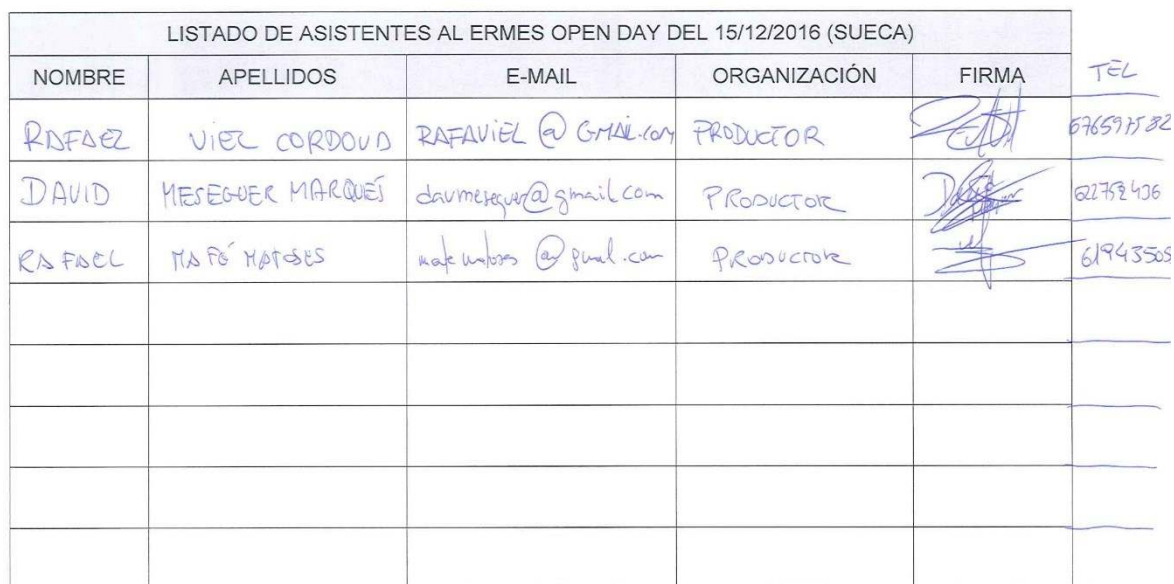 LISTADO DE ASISTENTES AL ERMES OPEN DAY DEL 15/12/2016 (SUECA)
NOMBRE APELLIDOS E-MAIL ORGANIZACIÓN FIRMA TEL
RAFAEL VIEL CORDOVA RAFAVIEL@GMAIL.com PRODUCTOR
DAVID MESEGUER MARQUÉS davmeseguer@gmail.com PRODUCTOR
RAFAEL MAFÉ MATOSES PRODUCTOR 61943505